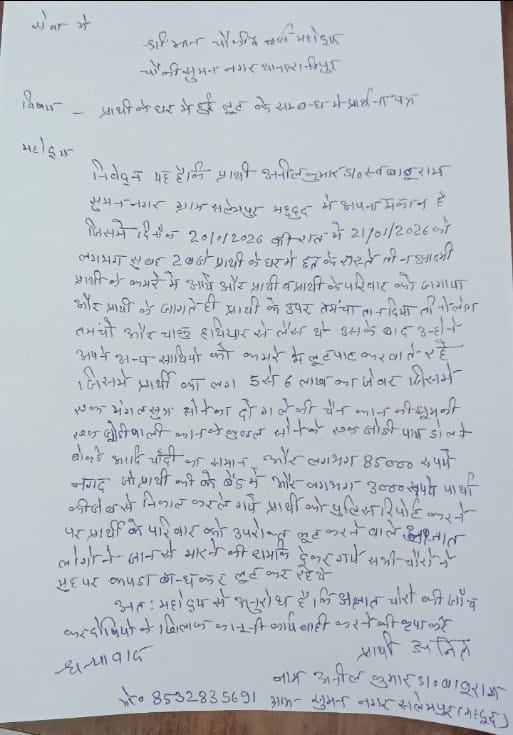 सेवा में
श्रीमान चौकी इंचार्ज महोदय
चौकी सुमन नगर थाना रानीपुर
विषय - प्रार्थी के घर में हुई लूट के सम्बन्ध में प्रार्थना पत्र
महोदय
निवेदन यह है कि प्रार्थी अनील कुमार S/o स्व बाबूराम
सुमन नगर ग्राम सलेमपुर महदूद में अपना मकान है
जिसमें दिनाँक 20/01/2026 की रात में 21/01/2026 को
लगभग सुबह 2 बजे प्रार्थी के घर में छत के रास्ते तीन आदमी
प्रार्थी के कमरे में आये और प्रार्थी व प्रार्थी के परिवार को जगाया
और प्रार्थी के जागते ही प्रार्थी के उपर तमंचा तान दिया तीनो लोग
तमंचो और चाकू हथियार से लैस थे उसके बाद उन्होने
अपने अन्य साथियों को कमरे में लूटपाट करवाते रहे
जिसमें प्रार्थी का लग 5 से 6 लाख का जेवर जिसमें
एक मंगलसूत्र सोने का दो गले की चैन कान की झुमकी
एक जोडी बाली कान के कुण्डल सोने के एक जोडी पाय
आदि चाँदी का समान और लगभग 85000 रुपये
नगद जो प्रार्थी की के बैड में और लगभग 3000 रुपये प्रार्थी
की जेब से निकाल कर ले गये प्रार्थी को पुलिस रिपोर्ट करने
पर प्रार्थी के परिवार को उपरोक्त लूट करने वाले अज्ञात
लोगो ने जान से मारने की धमकि देकर गये सभी चोरो ने
मुह पर कपडा बान्धकर लूट कर रहे थे
अत: महोदय से अनुरोध है कि अज्ञात चोरो की जाँच
कर दोषियो के खिलाफ कानूनी कार्यवाही करने की कृपा करें
धन्यवाद
प्रार्थी अनिल
नाम अनील कुमार S/o बाबूराम
मो० 8532835691 ग्राम सुमन नगर सलेमपुर (महदूद)